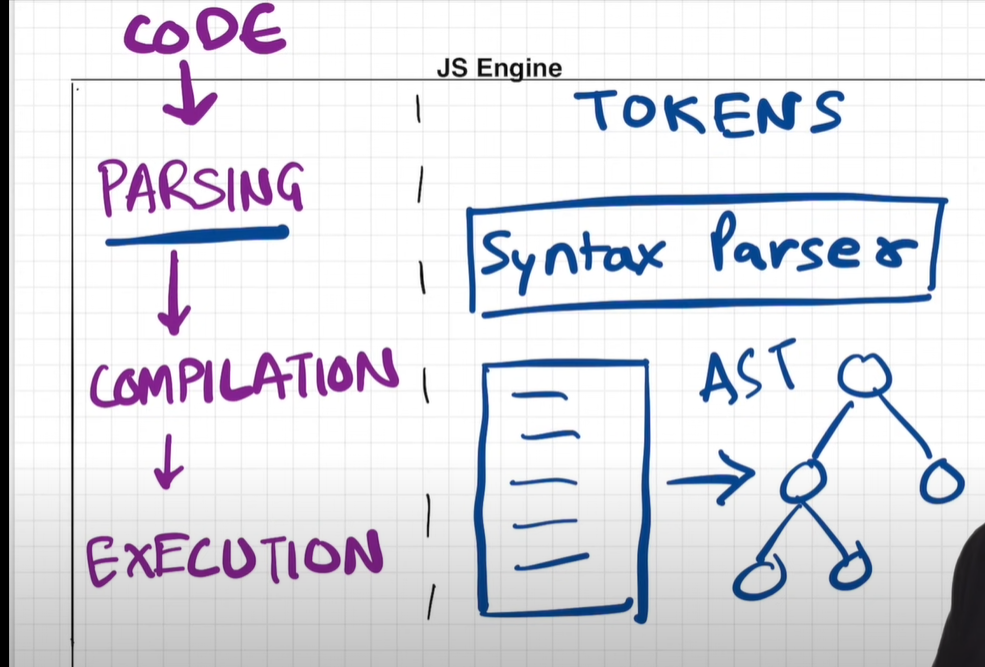 CODE
JS Engine
PARSING
COMPILATION
EXECUTION
TOKENS
Syntax Parser
AST